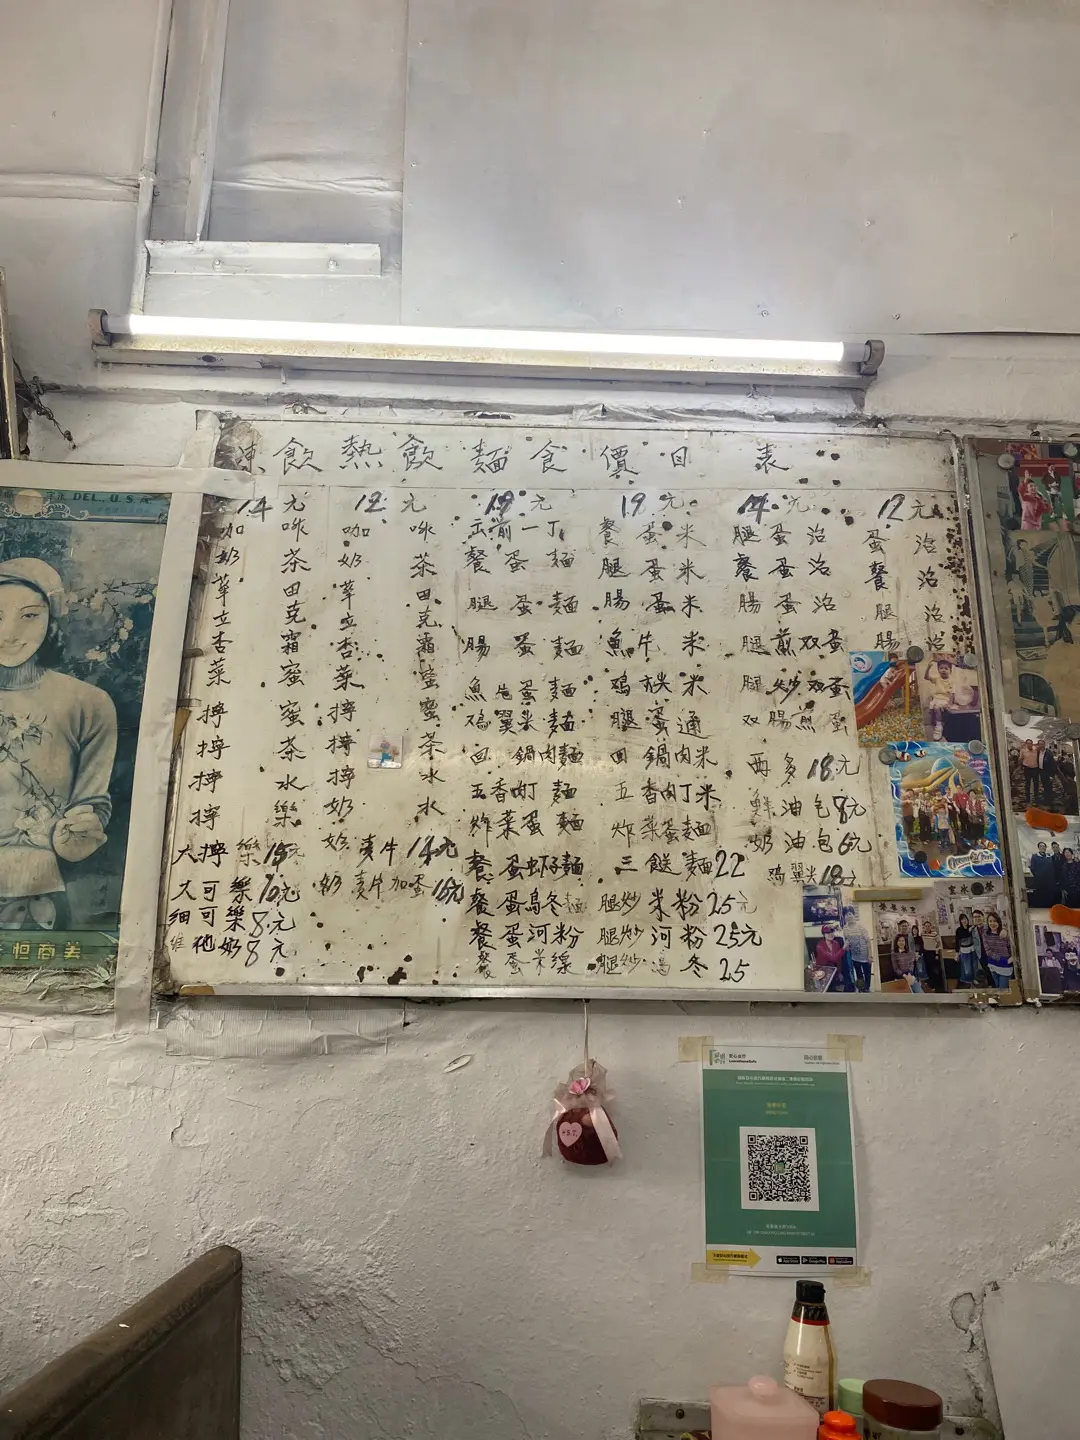 凍飲 熱飲 麵食 價目表
14元
咖啡
奶茶
華田
立克
杏霜
菜蜜
檸蜜
檸茶
檸水
檸樂
大檸樂15元
大可樂10元
細可樂8元
維他奶8元
12元
咖啡
奶茶
華田
立克
杏霜
菜蜜
檸蜜
檸茶
檸水
奶水
奶麦牛14元
奶麦牛加蛋16元
19元
前一丁
餐蛋麵
腿蛋麵
腸蛋麵
魚蛋麵
鸡翼米麵
回鍋肉麵
五香肉丁麵
炸菜蛋麵
餐蛋虾子麵
餐蛋烏冬麵
餐蛋河粉
餐蛋米線
19元
餐蛋米
腿蛋米
腸蛋米
魚牛米
鸡米
腿蛋通
回鍋肉米
五香肉丁米
炸菜蛋麵
三餸麵22
腿炒米粉25元
腿炒河粉25元
腿炒冬25
14元
腿蛋治
餐蛋治
腸蛋治
腿煎双蛋
腿炒双蛋
双腸煎蛋
西多18元
鮮油包8元
奶油包6元
鸡翼米18元
12元
蛋治
餐治
腿治
腸治
DEL., U.S.A.